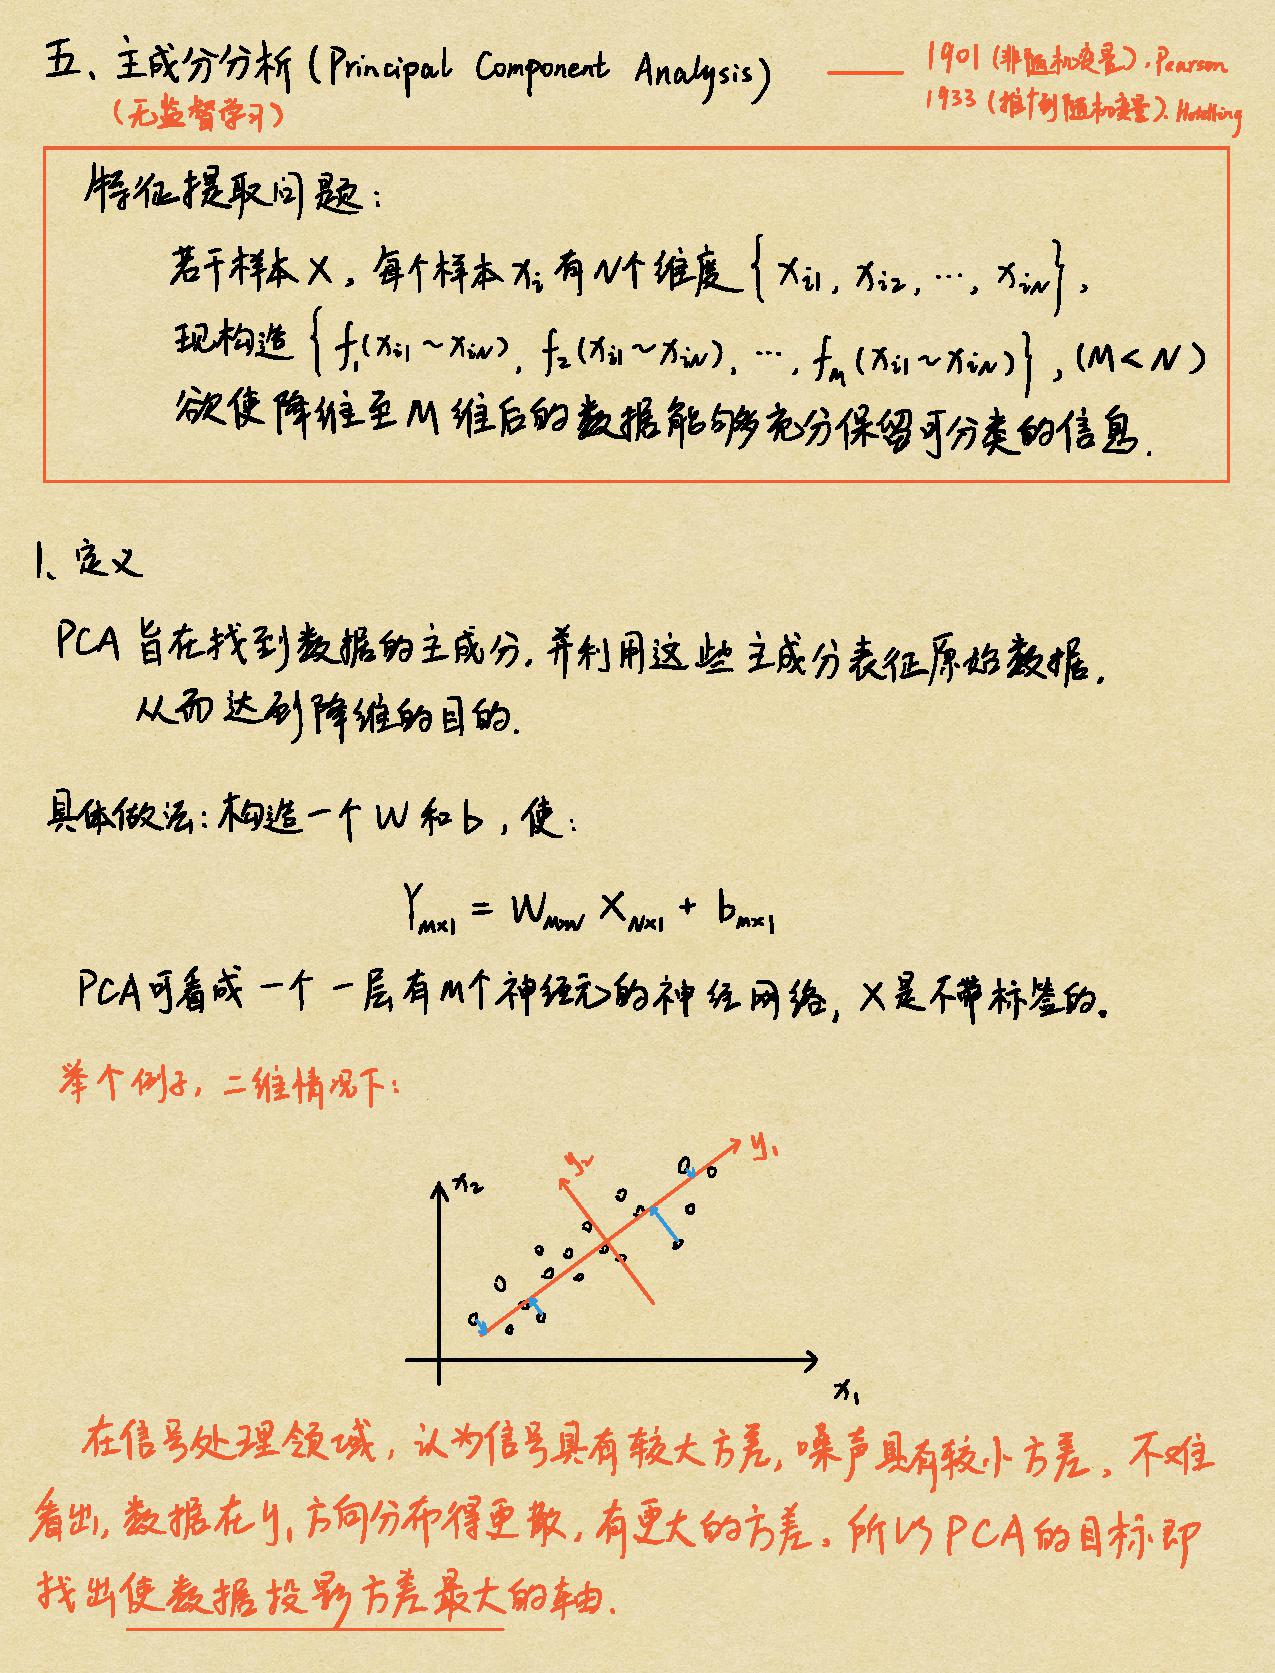 五、主成分分析(Principal Component Analysis) —— 1901(非随机变量).Pearson
(无监督学习) 1933(推广到随机变量).Hotelling
特征提取问题:
若干样本X,每个样本xᵢ有N个维度{xᵢ₁, xᵢ₂, …, xᵢN},
现构造{f₁(xᵢ₁~xᵢN), f₂(xᵢ₁~xᵢN), …, fM(xᵢ₁~xᵢN)},(M<N)
欲使降维至M维后的数据能够充分保留可分类的信息.
1、定义
PCA旨在找到数据的主成分,并利用这些主成分表征原始数据,
从而达到降维的目的.
具体做法:构造一个W和b,使:
Y_M×1 = W_M×N X_N×1 + b_M×1
PCA可看成一个一层有M个神经元的神经网络,X是不带标签的。
举个例子,二维情况下:
y₂ y₁
x₂
x₁
在信号处理领域,认为信号具有较大方差,噪声具有较小方差。不难
看出,数据在y₁方向分布得更散,有更大的方差。所以PCA的目标即
找出使数据投影方差最大的轴.